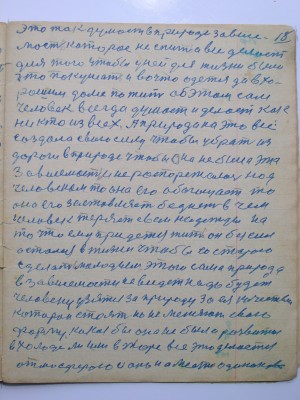 Это так думают в природе зависи- 18
мость которое не спит а все делает
для того чтобы у ней для жизни было
что покушать и во что одется да в хо-
рошим доме пожить об этом сам
человек всегда думает и делает как
никто из всех. А природа на это всё
создала свою силу чтобы убрать из
дороги в природе чтобы она не была эта
зависимость не распоряжалась над
человеком то она его обогащает то
она его заставляет беднеть в чем
человек теряет свои надежды на
то что ему придется жить он бессил
остался в жизни чтобы со старого
сделать молодым. этого сама природа
в зависимости не введет надо будет
человеку узятся за природу за ея качества
которая стоят но не меняют свою
форму, какая бы она не была развита
в холоде ли или в жаре все это делается
атмосферою и она на месте одинаково